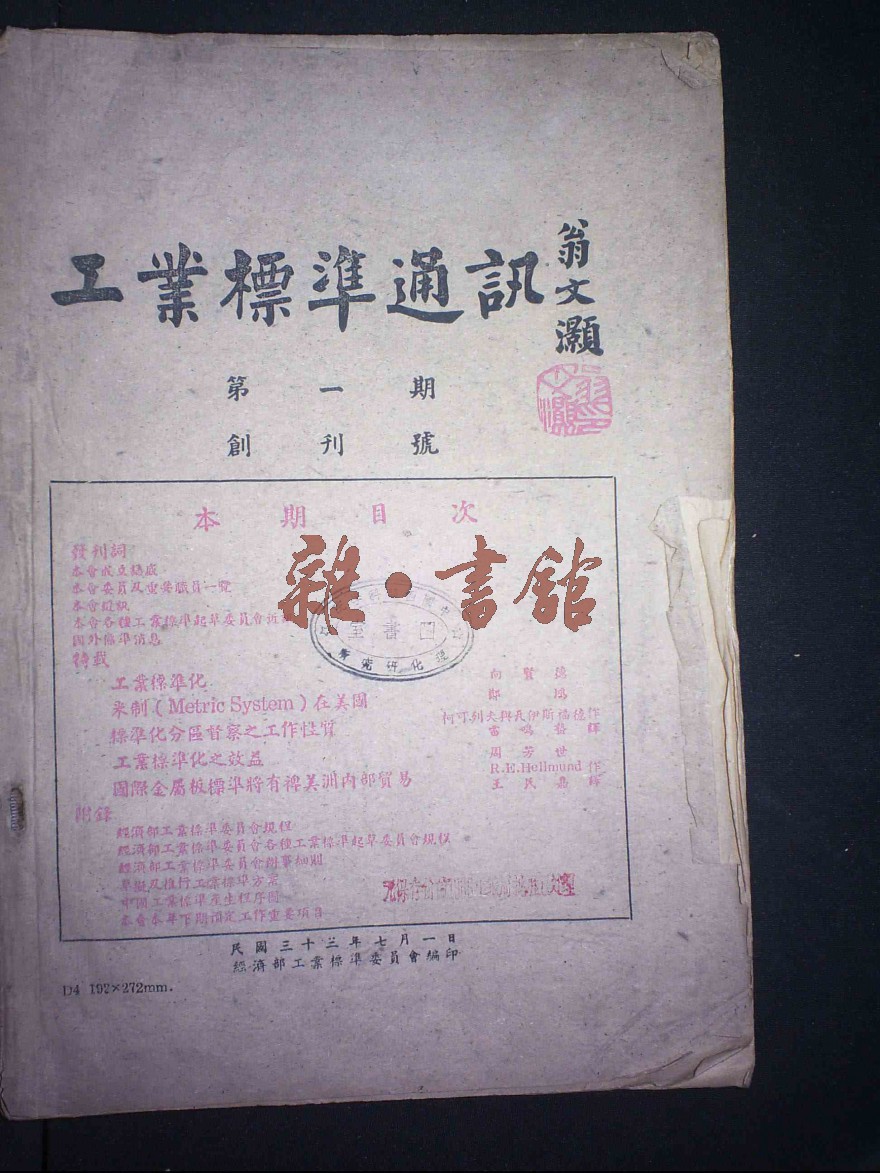 工業標準通訊
翁文灝
第一期
創刊號
本期目次
發刊詞
本會成立經咸
本會委員及重要職員一覽
本會組織
本會各種工業標準起草委員會近
國外標準消息
轉載
工業標準化 向賢德
米制(Metric System)在美國 鄭
標準化分區督察之工作性質 柯可列夫與瓦伊斯福德作
雷鳴 譯
工業標準化之效益 周芳世
國際金屬板標準將有裨美洲內部貿易 R.E.Hellmund 作
王民 譯
附錄
經濟部工業標準委員會規程
經濟部工業標準委員會各種工業標準起草委員會規程
經濟部工業標準委員會辦事細則
草擬及推行工業標準方案
中國工業標準產生程序圖
本會本年下期預定工作重要項目
雜·書館
圖書室
民國三十三年七月一日
經濟部工業標準委員會編印
D4 192×272mm.